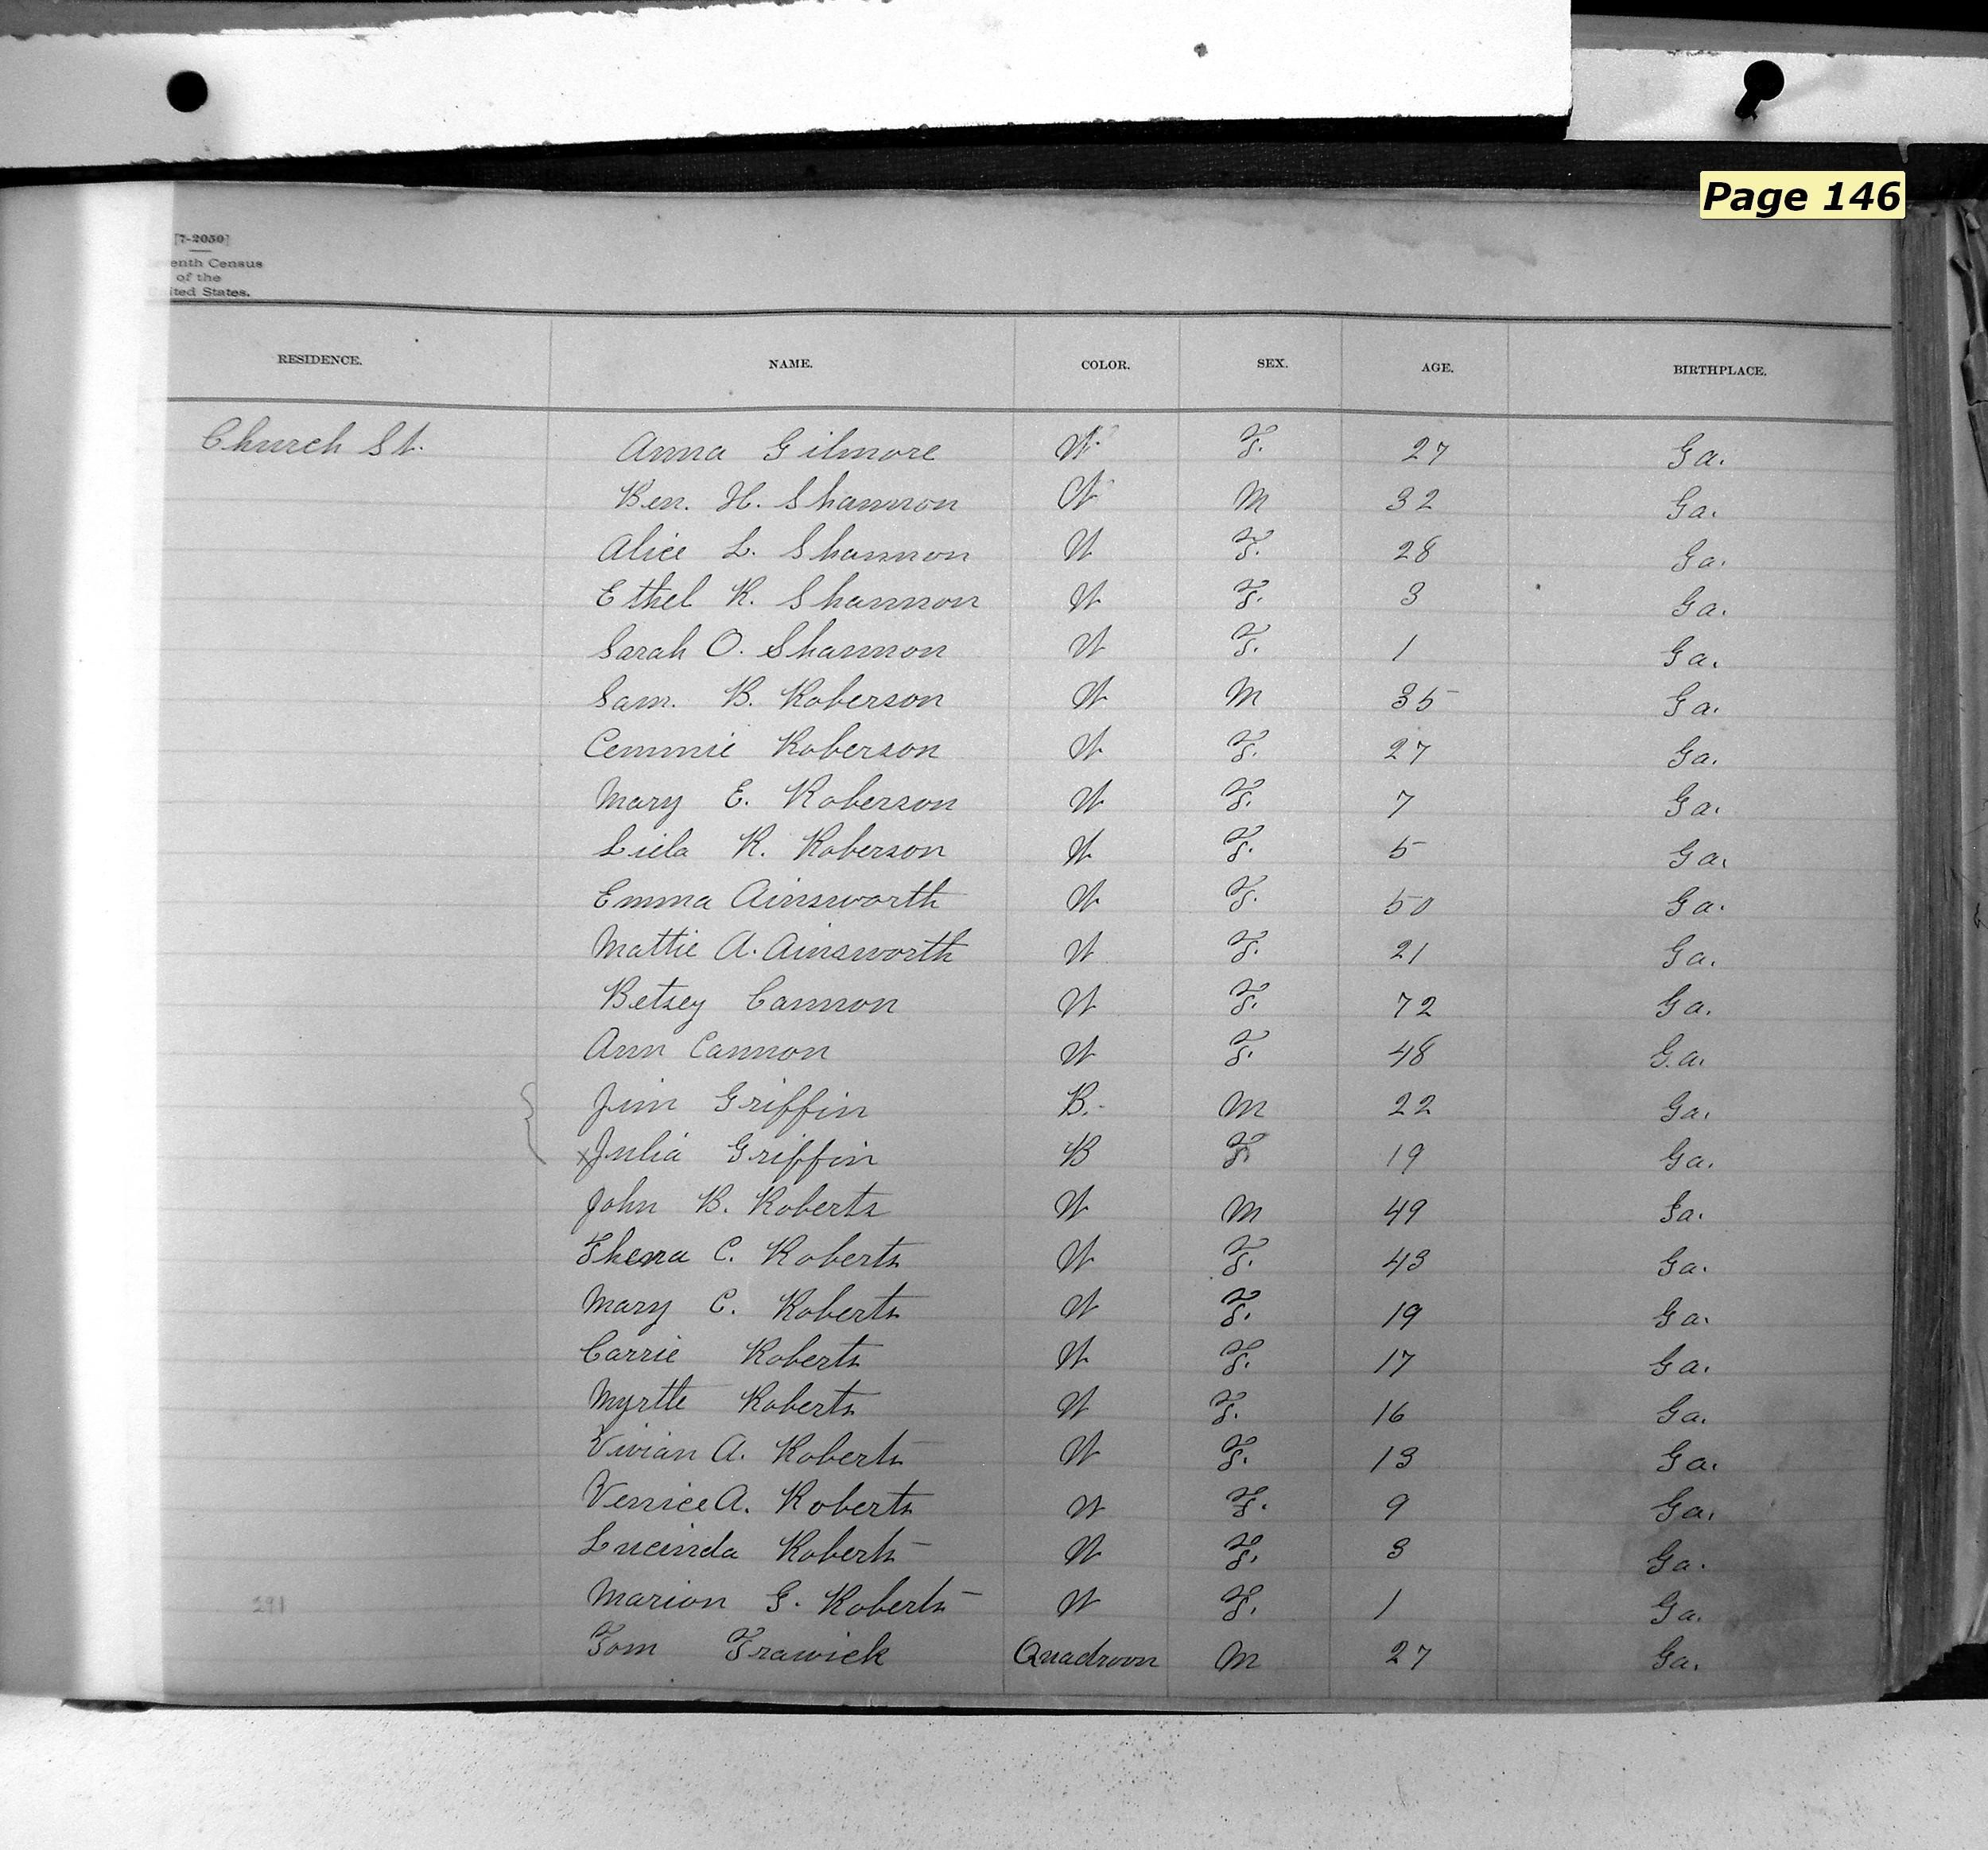 Page 146
[7-2050]
enth Census
of the
ited States.
RESIDENCE. NAME. COLOR. SEX. AGE. BIRTHPLACE.
Church St. Anna Gilmore W F. 27 Ga.
Ben. H. Shannon W M 32 Ga.
Alice L. Shannon W F. 28 Ga.
Ethel R. Shannon W F. 3 Ga.
Sarah O. Shannon W F. 1 Ga.
Sam. B. Roberson W M 35 Ga.
Cemmie Roberson W F. 27 Ga.
Mary E. Roberson W F. 7 Ga.
Liela R. Roberson W F. 5 Ga.
Emma Ainsworth W F. 50 Ga.
Mattie A. Ainsworth W F. 21 Ga.
Betsey Cannon W F. 72 Ga.
Ann Cannon W F. 48 Ga.
Jim Griffin B. M 22 Ga.
x Julia Griffin B F. 19 Ga.
John B. Roberts W M 49 Ga.
C. Roberts W F. 43 Ga.
Mary C. Roberts W F. 19 Ga.
Carrie Roberts W F. 17 Ga.
Myrtle Roberts W F. 16 Ga.
Vivian A. Roberts W F. 13 Ga.
Vernice A. Roberts W F. 9 Ga.
Lucinda Roberts W F. 3 Ga.
291 Marion G. Roberts W F. 1 Ga.
Tom Trawick Quadroon M 27 Ga.